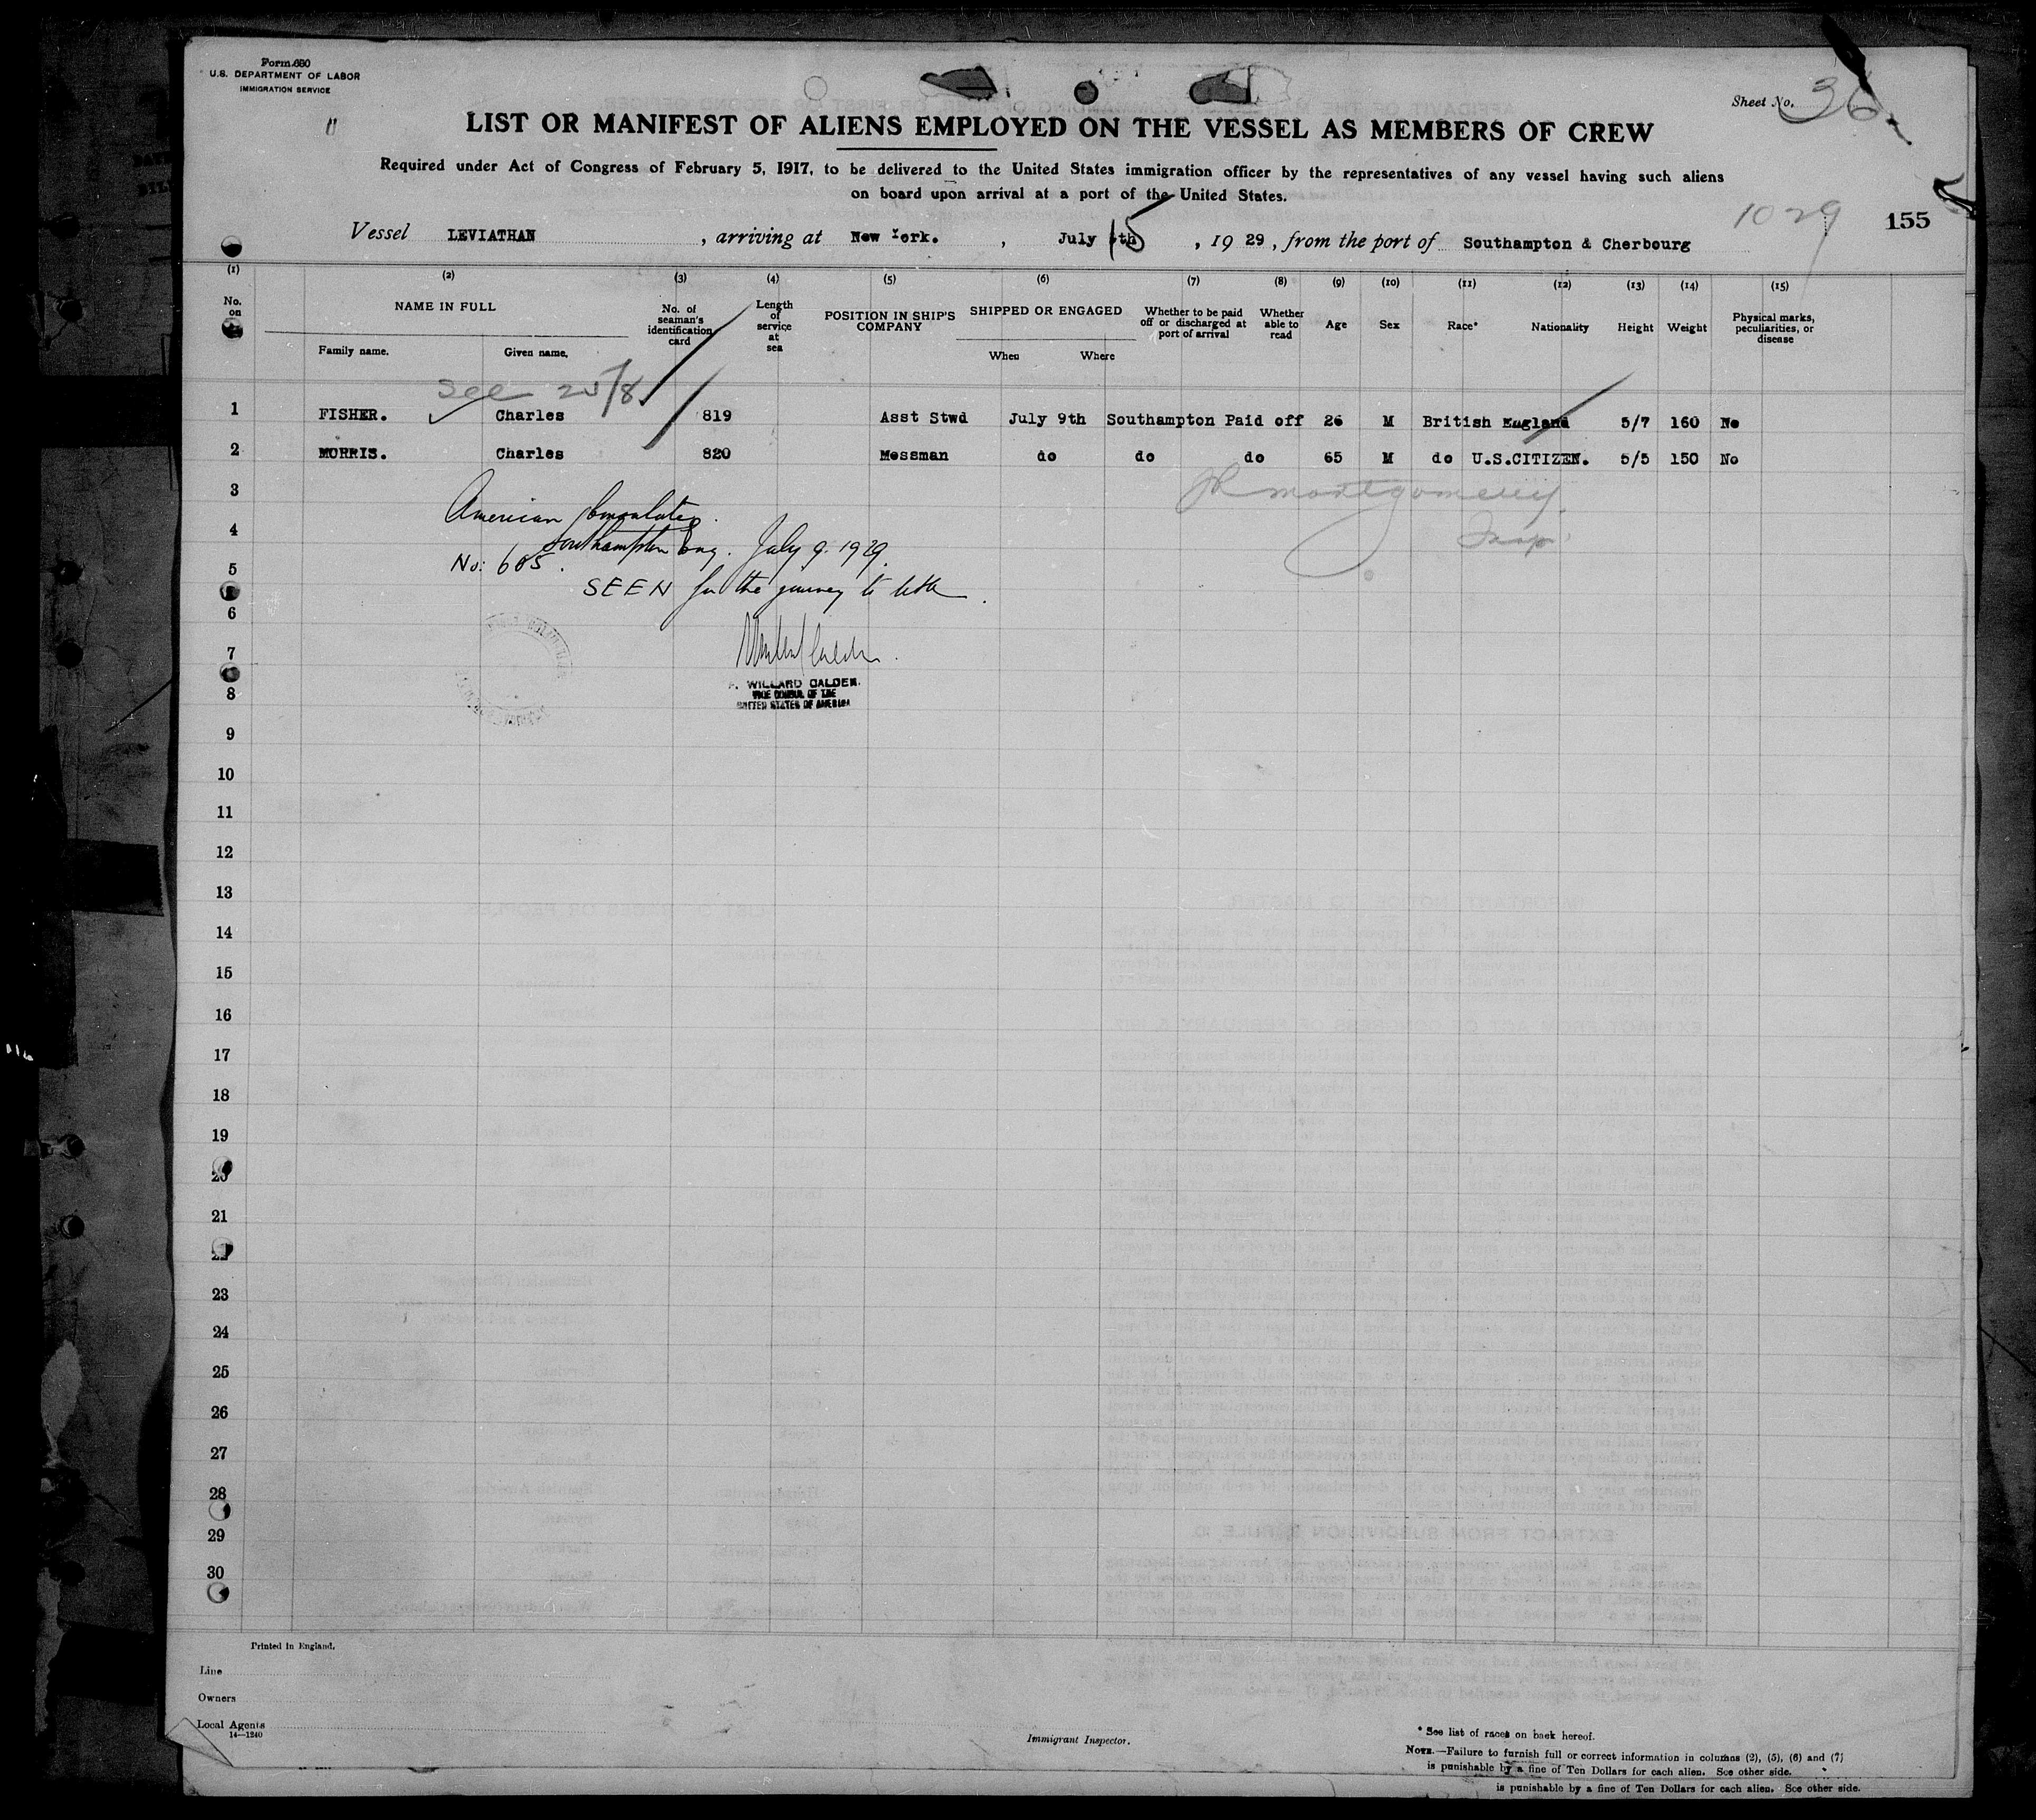 Form 680
U.S. DEPARTMENT OF LABOR
IMMIGRATION SERVICE
Sheet No. 36
LIST OR MANIFEST OF ALIENS EMPLOYED ON THE VESSEL AS MEMBERS OF CREW
Required under Act of Congress of February 5, 1917, to be delivered to the United States immigration officer by the representatives of any vessel having such aliens
on board upon arrival at a port of the United States.
1029 155
Vessel LEVIATHAN , arriving at New York. , July 15 , 19 29 , from the port of Southampton & Cherbourg
(1) (2) (3) (4) (5) (6) (7) (8) (9) (10) (11) (12) (13) (14) (15)
No. on
NAME IN FULL
Family name. Given name.
No. of seaman's identification card
Length of service at sea
POSITION IN SHIP'S COMPANY
SHIPPED OR ENGAGED
When Where
Whether to be paid off or discharged at port of arrival
Whether able to read
Age
Sex
Race*
Nationality
Height
Weight
Physical marks, peculiarities, or disease
See 25/8
1 FISHER. Charles 819 Asst Stwd July 9th Southampton Paid off 26 M British England 5/7 160 No
2 MORRIS. Charles 820 Messman do do do 65 M do U.S.CITIZEN. 5/5 150 No
3
JR Montgomery
American Consulate
4
Insp
Southampton Eng. July 9. 1929.
No: 605.
5
SEEN for the journey to
6
7
8
F. WILLARD CALDER.
VICE CONSUL OF THE
UNITED STATES OF AMERICA
9
10
11
12
13
14
15
16
17
18
19
20
21
22
23
24
25
26
27
28
29
30
Printed in England.
Line
Owners
Local Agents
14—1240
Immigrant Inspector.
* See list of races on back hereof.
NOTE.—Failure to furnish full or correct information in columns (2), (5), (6) and (7)
is punishable by a fine of Ten Dollars for each alien. See other side.
is punishable by a fine of Ten Dollars for each alien. See other side.